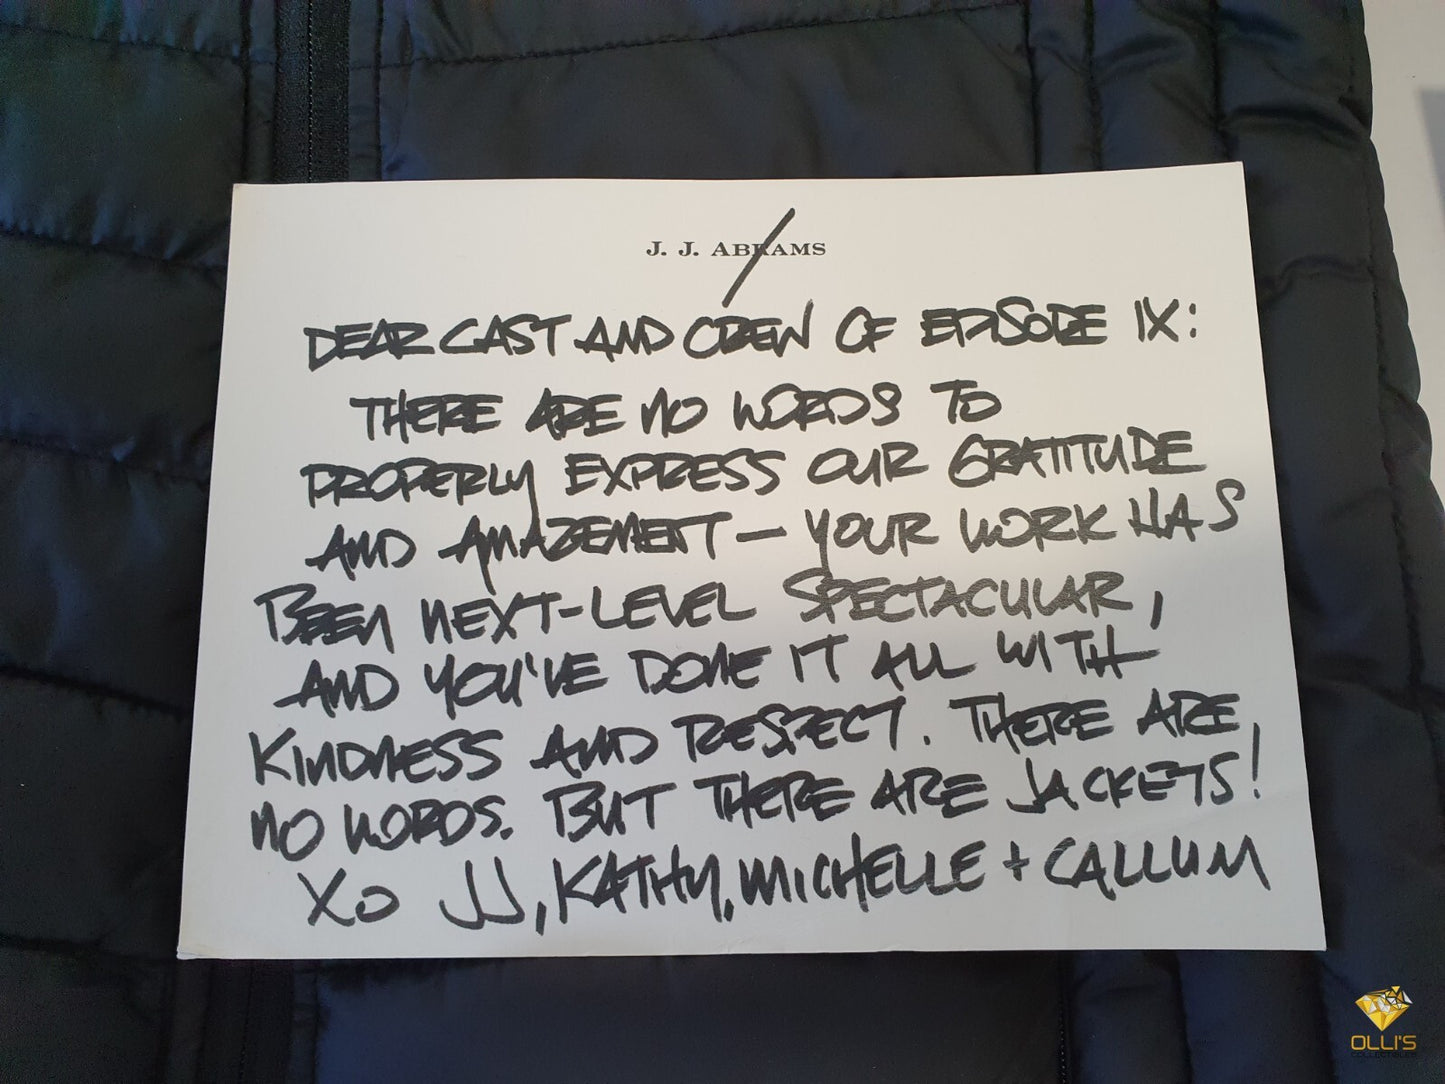 J. J. ABRAMS
DEAR CAST AND CREW OF EPISODE IX:
THERE ARE NO WORDS TO
PROPERLY EXPRESS OUR GRATITUDE
AND AMAZEMENT — YOUR WORK HAS
BEEN NEXT-LEVEL SPECTACULAR,
AND YOU'VE DONE IT ALL WITH
KINDNESS AND RESPECT. THERE ARE
NO WORDS. BUT THERE ARE JACKETS!
XO JJ, KATHY, MICHELLE + CALLUM
OLLI'S
COLLECTIBLES